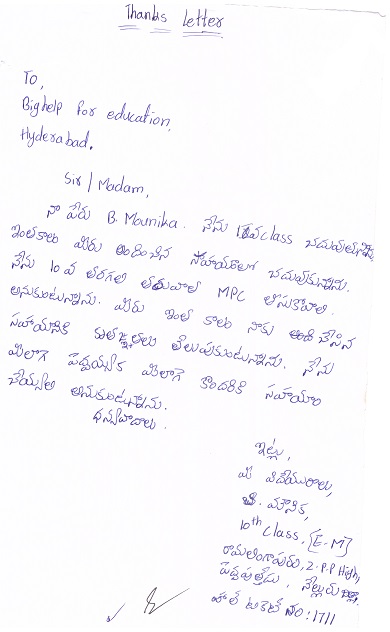 Thanks letter
To,
Bighelp for education,
Hyderabad.
Sir / Madam,
నా పేరు B. Mounika. నేను 10వ class చదువుతున్నాను
ఇంతకాలం మీరు అందించిన సహాయంతో చదువుకున్నాను.
నేను 10 వ తరగతి తరువాత MPC తీసుకోవాలి
అనుకుంటున్నాను. మీరు ఇంత కాలం నాకు అందచేసిన
సహాయానికి కృతజ్ఞతలు తెలుపుకుంటున్నాను. నేను
మీలాగ పెద్దయ్యాక మీలాగే కొందరికి సహాయం
చేయ్యాలి అనుకుంటున్నాను.
ధన్యవాదాలు.
ఇట్లు,
మీ విధేయురాలు,
బి. మౌనిక,
10th class, [E-M]
రామలింగాపురం, Z.P.P High,
పెద్దపుత్తేడు, నెల్లూరు జిల్లా.
హాల్ టికెట్ నెం: 1711